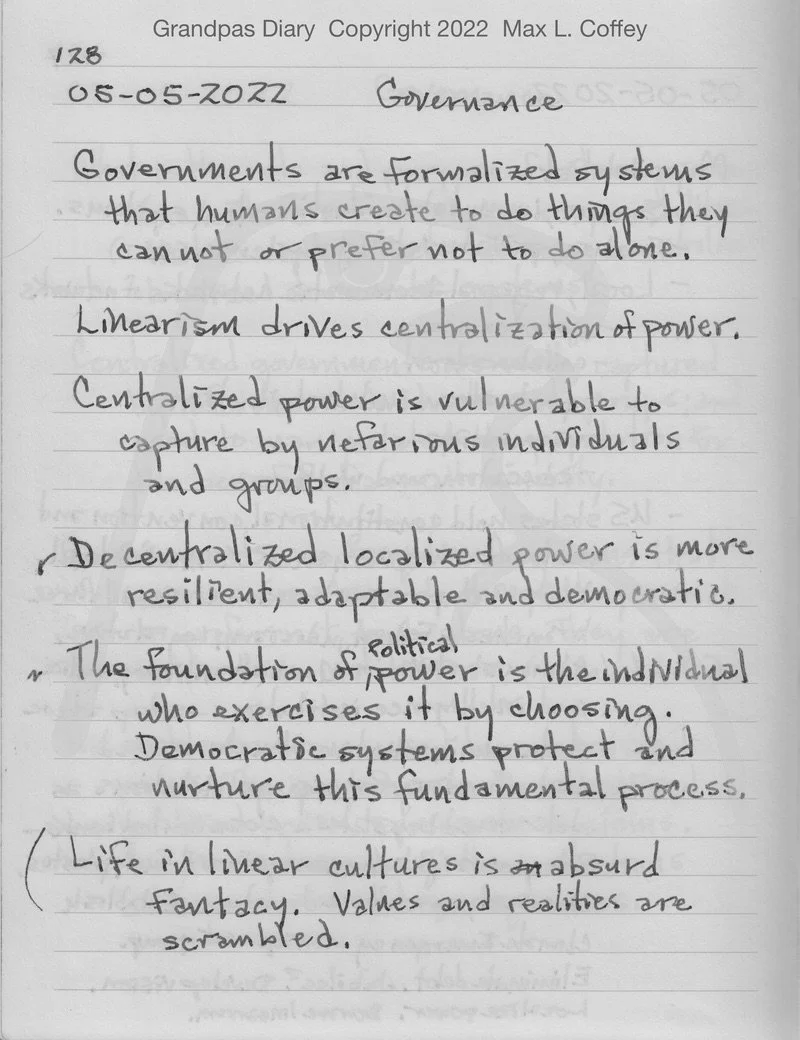 Grandpas Diary Copyright 2022 Max L. Coffey
128
05-05-2022 Governance
Governments are formalized systems
that humans create to do things they
can not or prefer not to do alone.
Linearism drives centralization of power.
Centralized power is vulnerable to
capture by nefarious individuals
and groups.
Decentralized localized power is more
resilient, adaptable and democratic.
The foundation of political power is the individual
who exercises it by choosing.
Democratic systems protect and
nurture this fundamental process.
Life in linear cultures is an absurd
fantacy. Values and realities are
scrambled.